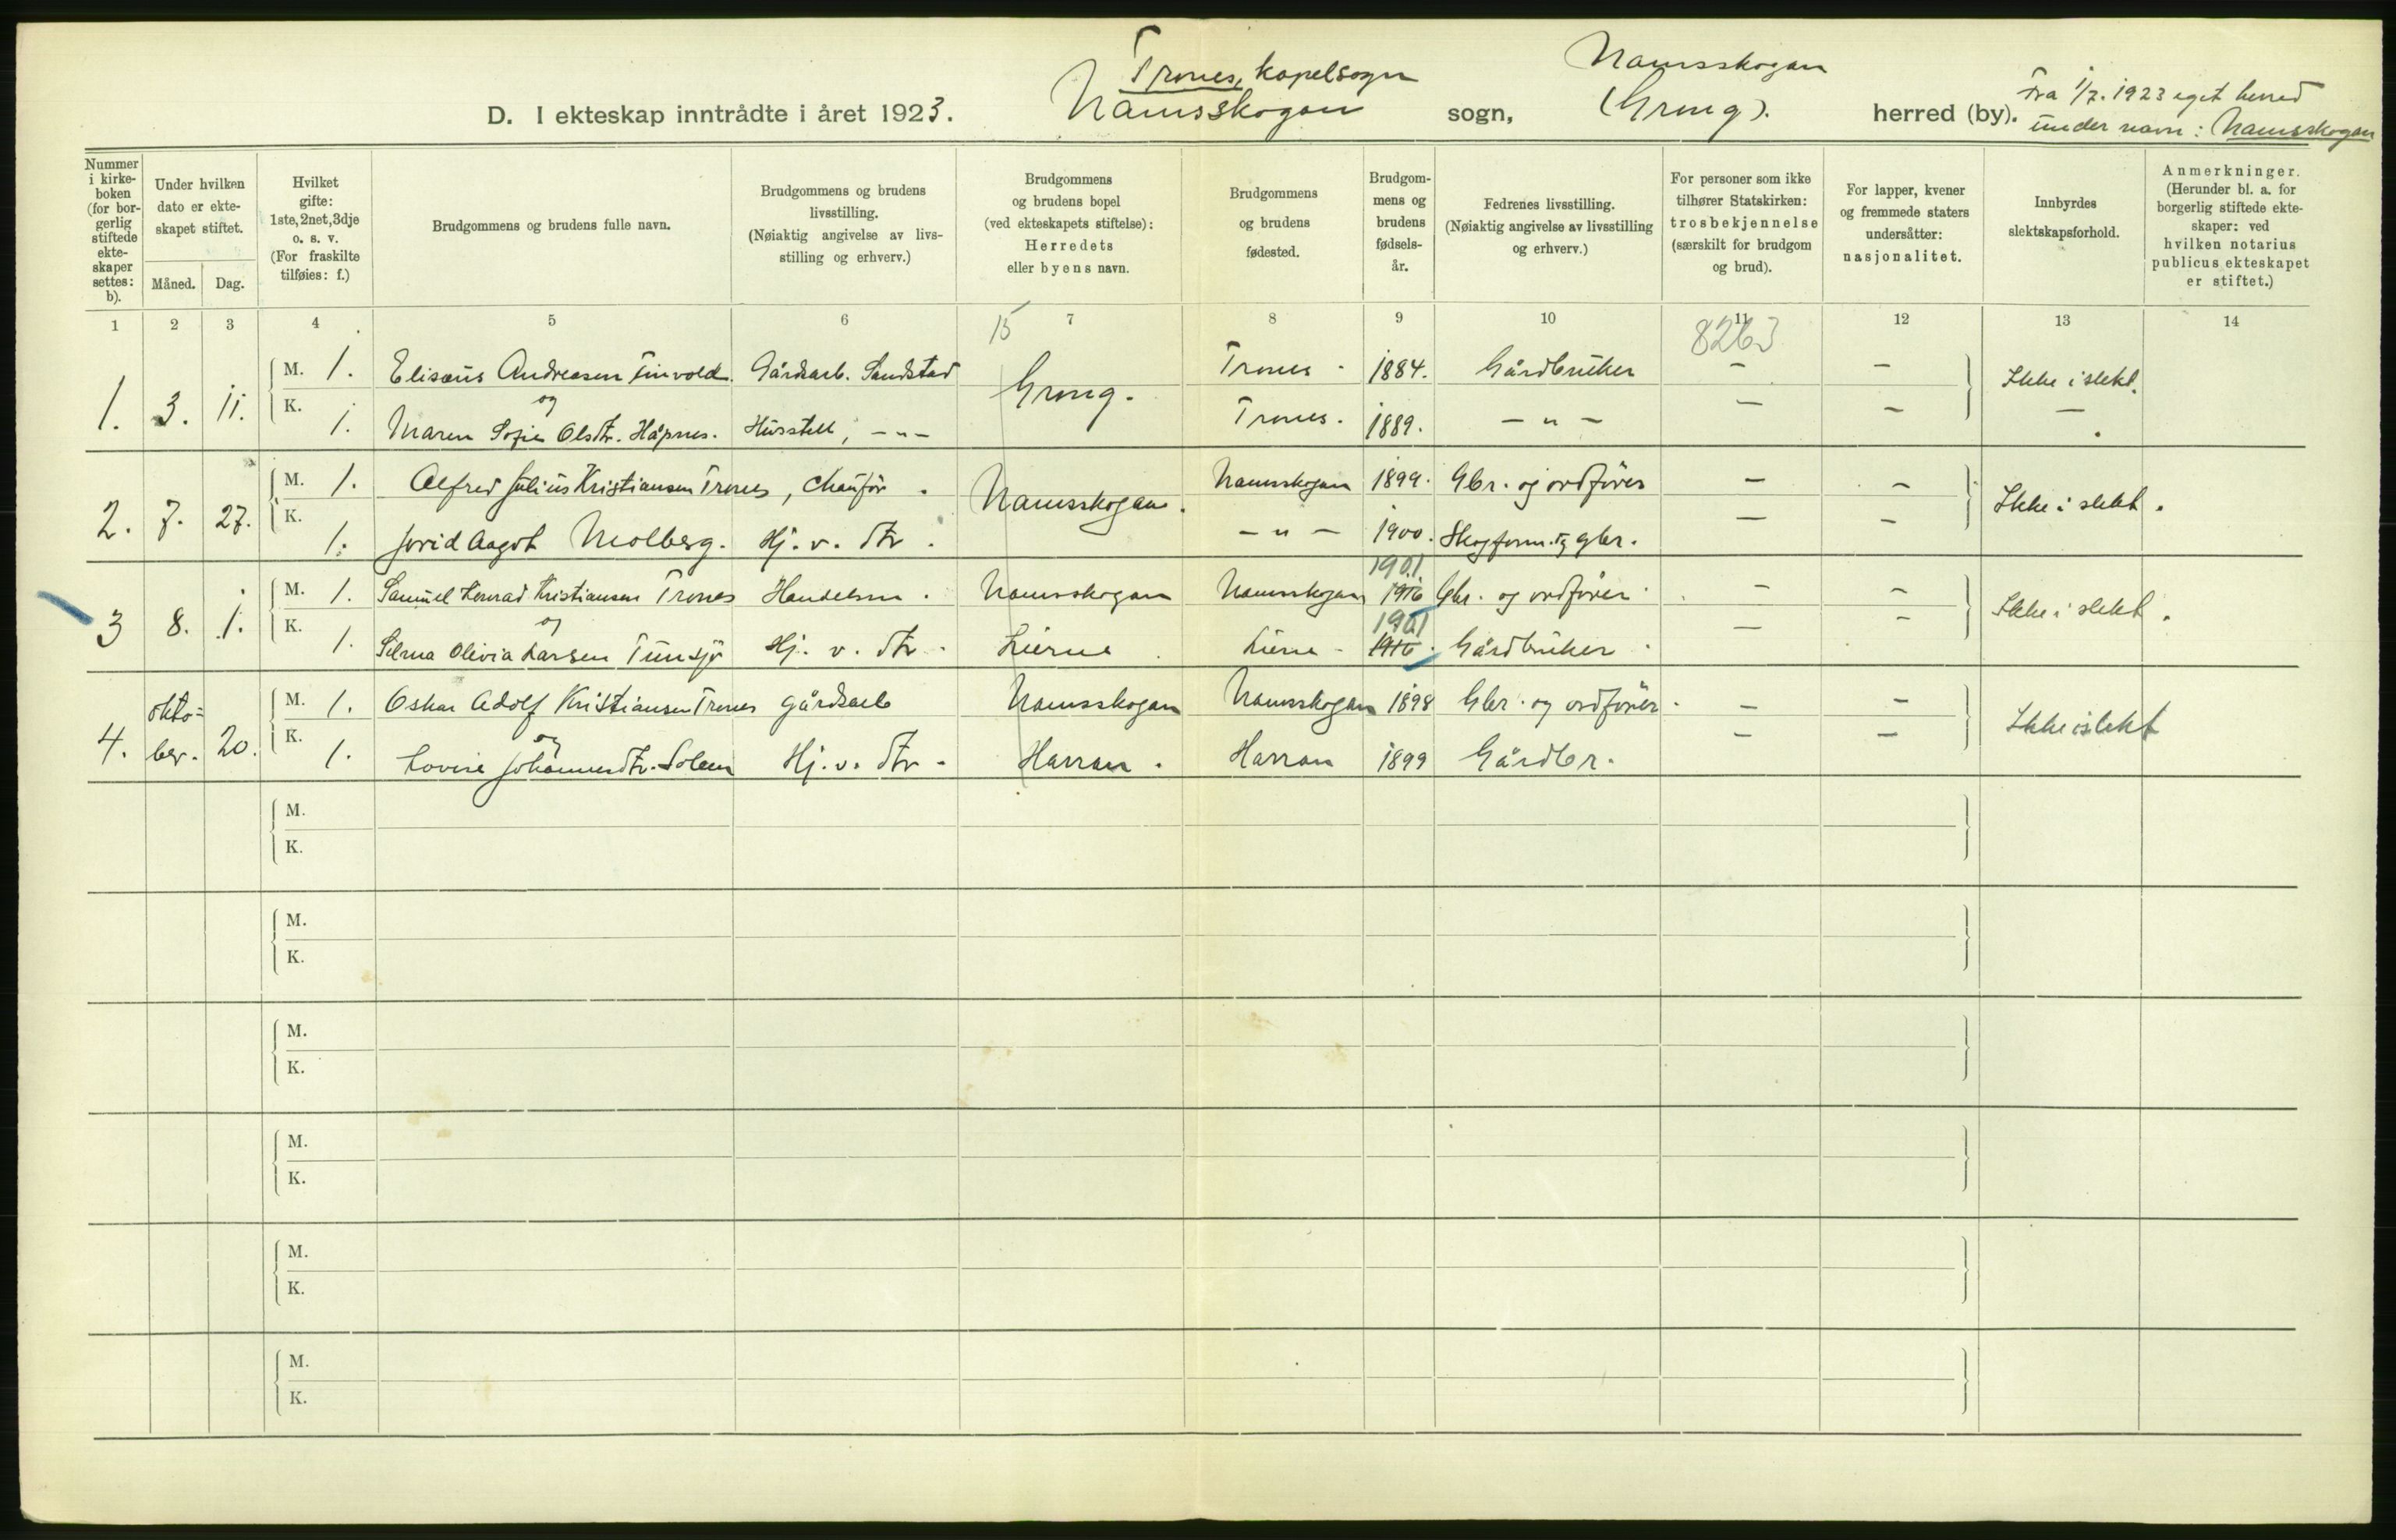 Trones, kapelsogn
Namsskogan
D. I ekteskap inntrådte i året 1923. Namsskogan sogn, (Grong). herred (by). Fra 1/7. 1923 eget herred
under navn: Namsskogan
Nummer i kirke-boken (for bor-gerlig stiftede ekte-skaper settes: b).
Under hvilken dato er ekte-skapet stiftet.
Måned. Dag.
Hvilket gifte: 1ste, 2net, 3dje o. s. v. (For fraskilte tilføies: f.)
Brudgommens og brudens fulle navn.
Brudgommens og brudens livsstilling. (Nøiaktig angivelse av livs-stilling og erhverv.)
Brudgommens og brudens bopel (ved ekteskapets stiftelse): Herredets eller byens navn.
Brudgommens og brudens fødested.
Brudgom-mens og brudens fødsels-år.
Fedrenes livsstilling. (Nøiaktig angivelse av livsstilling og erhverv.)
For personer som ikke tilhører Statskirken: trosbekjennelse (særskilt for brudgom og brud).
For lapper, kvener og fremmede staters undersåtter: nasjonalitet.
Innbyrdes slektskapsforhold.
Anmerkninger. (Herunder bl. a. for borgerlig stiftede ekte-skaper: ved hvilken notarius publicus ekteskapet er stiftet.)
1 2 3 4 5 6 7 8 9 10 11 12 13 14
15 8263
M. 1. Elisæus Andreasen Finvold. Gårdsarb. Sandstad Trones - 1884. Gårdbruker - -
1. 3. 11. og Grong. Ikke i slekt.
K. 1. Maren Sofie Olsdtr. Håpnes. Husstell, -"- Trones. 1889. -"- - - -
M. 1. Alfred Julius Kristiansen Trones, Chaufør. Namsskogan 1899. Gbr. og ordfører - -
2. 7. 27. Namsskogan. Ikke i slekt.
K. 1. Jorid Aagot Molberg. Hj. v. dtr. -"- 1900. Skogform. og gbr. - -
1901
M. 1. Samuel Konrad Kristiansen Trones Handelsm. Namsskogan Namsskogan Gbr. og ordfører - -
3 8. 1. og 1901 Ikke i slekt.
K. 1. Selma Olivia Larsen Tunsjø Hj. v. dtr. Lierne Lierne - Gårdbruker - -
M. 1. Oskar Adolf Kristiansen Trones gårdsarb Namsskogan Namsskogan 1898 Gbr. og ordfører - -
4. okto=ber. 20. og Ikke i slekt
K. 1. Lovise Johannesdtr. Solem Hj. v. dtr. Harran. Harran 1899 Gårdbr. - -
M.
K.
M.
K.
M.
K.
M.
K.
M.
K.
M.
K.